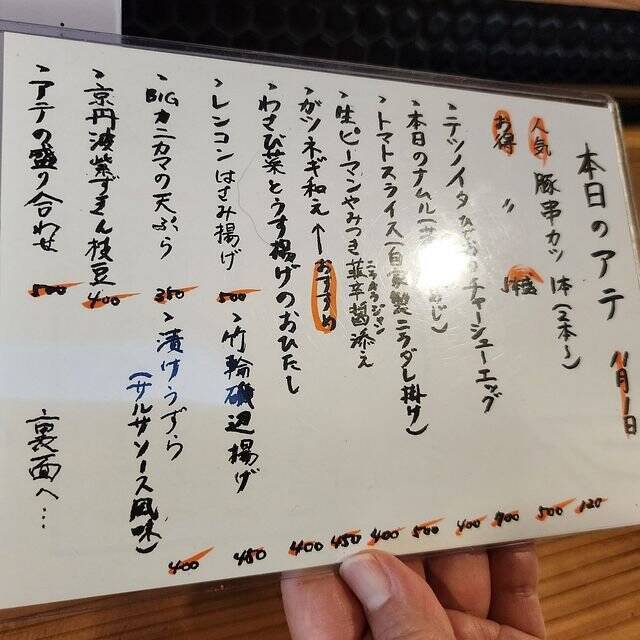 本日のアテ 11月1日
人気 豚串カツ 1本(2本〜) 120
お得 〃 5種 500
・テツノイタ チャーシューエッグ 700
・本日のナムル 400
・トマトスライス(自家製ニラダレ掛け) 500
・生ピーマンやみつき蝦辛醤添え 400
・ガツネギ和え ←おすすめ 450
・わさび菜とうす揚げのおひたし 400
・レンコンはさみ揚げ 500
・竹輪磯辺揚げ 450
・BIGカニカマの天ぷら 350
・漬けうずら
(サルサソース風味) 400
・京丹波紫ずきん枝豆 400
・アテの盛り合わせ 500
・裏面へ…